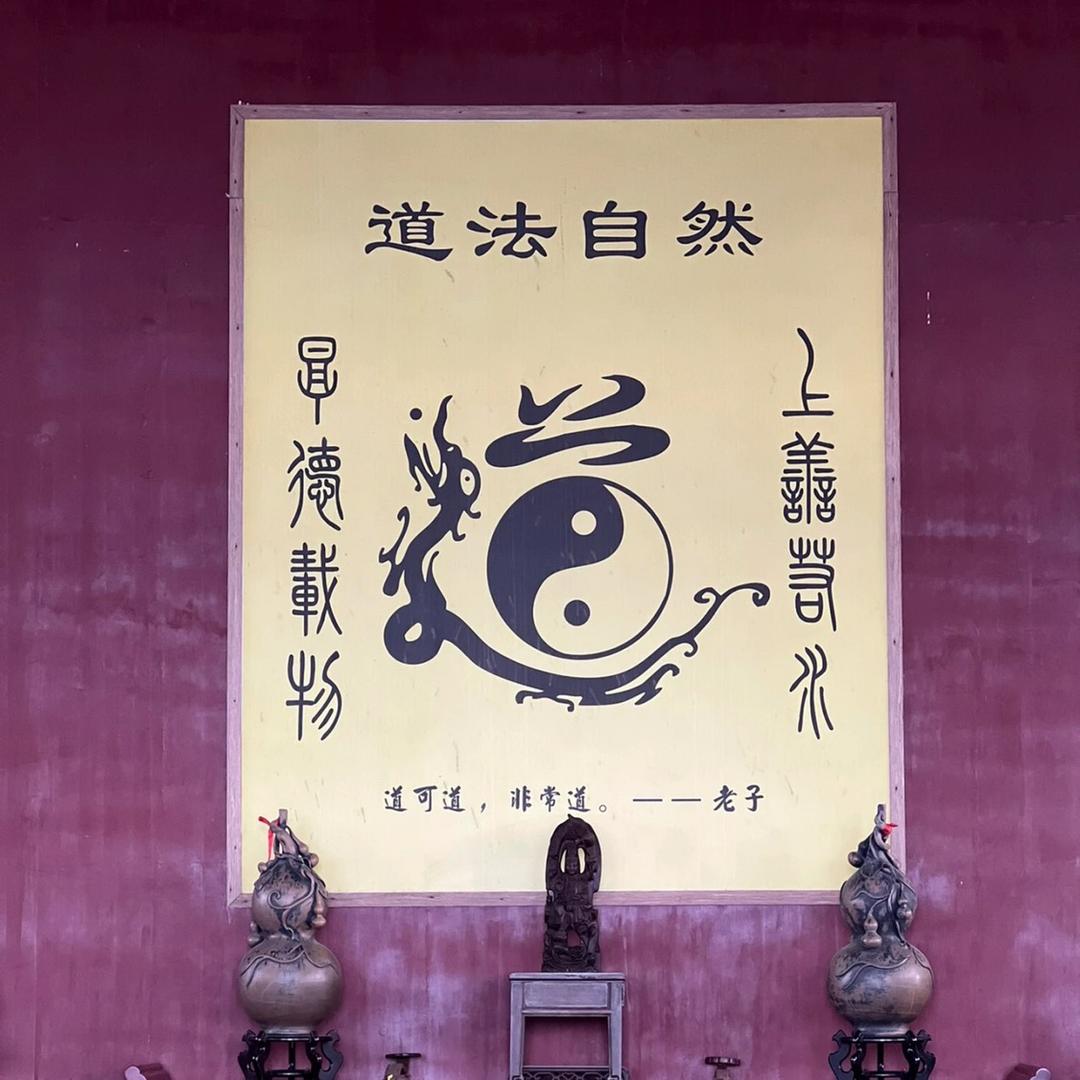 道法自然
上善若水
厚德載物
道可道，非常道。——老子